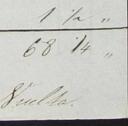 1 1/2 "
68 1/4 "
Vuelta.